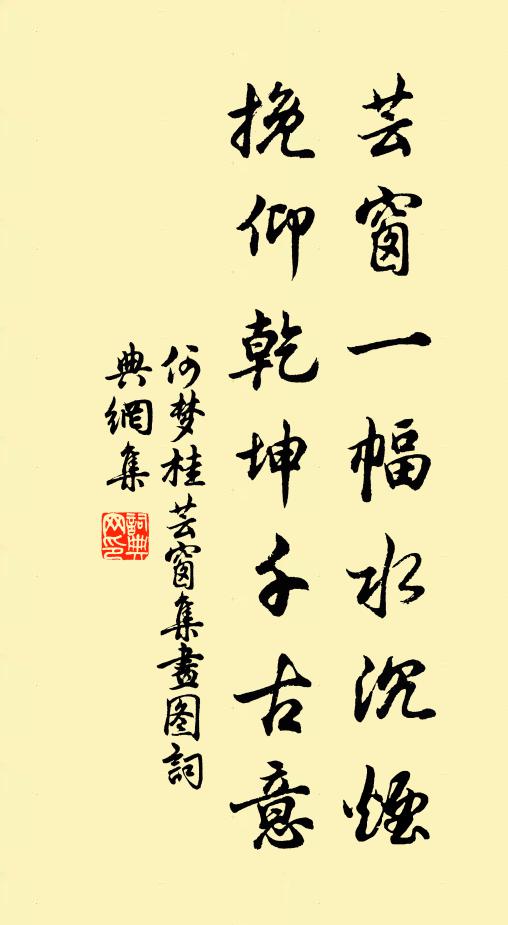 芸窗一幅水沉煙
挽仰乾坤千古意
何梦桂芸窗集畫图詞
典網集
詞典网印